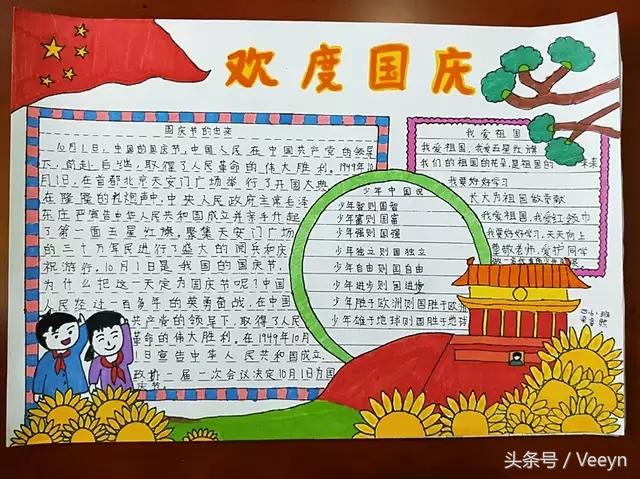 欢度国庆
国庆节的由来
10月1日,中国的国庆节,中国人民在中国共产党的领导
下,前赴后继,取得了人民革命的伟大胜利。1949年10
月1日,在首都北京天安门广场举行了开国大典
在隆隆的礼炮声中,中央人民政府主席毛泽
东庄严宣告中华人民共和国成立并亲手升起
了第一面五星红旗。聚集天安门广场
的三十万军民进行了盛大的阅兵和庆
祝游行,10月1日是我国的国庆节,
为什么把这一天定为国庆节呢?中国
人民经过一百多年的英勇奋战,在中国
共产党的领导下,取得了人民
革命的伟大胜利。在1949年10月
1日宣告中华人民共和国成立,
政协一届二次会议决定10月1日为国
庆节
少年中国说
少年智则国智
少年富则国富
少年强则国强
少年独立则国独立
少年自由则国自由
少年进步则国进步
少年胜于欧洲则国胜于欧洲
少年雄于地球则国胜于地球
我爱祖国
我爱祖国,我爱五星红旗
我们的祖国的花朵,是祖国的未来
我要好好学习
长大为祖国做贡献
我爱祖国,我爱红领巾
我要好好学习,天天向上
尊敬老师,爱护同学
头条号 / Veeyn